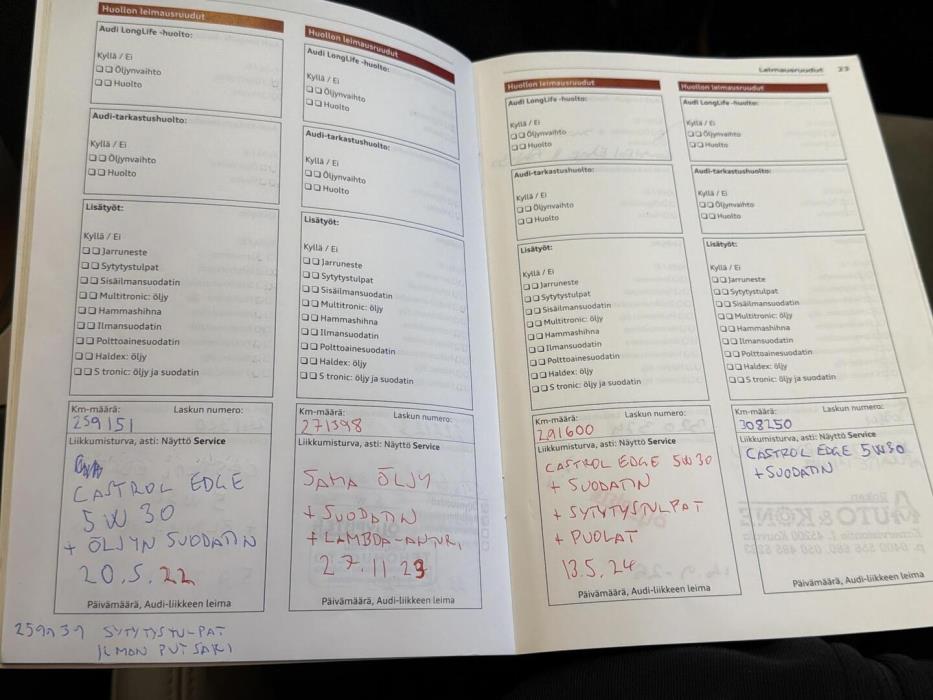 Huollon leimausruudut
Audi LongLife -huolto:
Kyllä / Ei
Öljynvaihto
Huolto
Audi-tarkastushuolto:
Kyllä / Ei
Öljynvaihto
Huolto
Lisätyöt:
Kyllä / Ei
Jarruneste
Sytytystulpat
Sisäilmansuodatin
Multitronic: öljy
Hammashihna
Ilmansuodatin
Polttoainesuodatin
Haldex: öljy
S tronic: öljy ja suodatin
Km-määrä: Laskun numero:
259151
Liikkumisturva, asti: Näyttö Service
CASTROL EDGE
5W30
+ ÖLJYN SUODATIN
20.5.22
Päivämäärä, Audi-liikkeen leima
SYTYTYSTU-PAT
ILMAN PUTSARI
Huollon leimausruudut
Audi LongLife -huolto:
Kyllä / Ei
Öljynvaihto
Huolto
Audi-tarkastushuolto:
Kyllä / Ei
Öljynvaihto
Huolto
Lisätyöt:
Kyllä / Ei
Jarruneste
Sytytystulpat
Sisäilmansuodatin
Multitronic: öljy
Hammashihna
Ilmansuodatin
Polttoainesuodatin
Haldex: öljy
S tronic: öljy ja suodatin
Km-määrä: Laskun numero:
271398
Liikkumisturva, asti: Näyttö Service
SAMA ÖLJY
+ SUODATIN
+ LAMBDA-ANTURI
27.11.23
Päivämäärä, Audi-liikkeen leima
Leimausruudut 23
Huollon leimausruudut
Audi LongLife -huolto:
Kyllä / Ei
Öljynvaihto
Huolto
Audi-tarkastushuolto:
Kyllä / Ei
Öljynvaihto
Huolto
Lisätyöt:
Kyllä / Ei
Jarruneste
Sytytystulpat
Sisäilmansuodatin
Multitronic: öljy
Hammashihna
Ilmansuodatin
Polttoainesuodatin
Haldex: öljy
S tronic: öljy ja suodatin
Km-määrä: Laskun numero:
291600
Liikkumisturva, asti: Näyttö Service
CASTROL EDGE 5W30
+ SUODATIN
+ SYTYTYSTULPAT
+ PUOLAT
13.5.24
Päivämäärä, Audi-liikkeen leima
Huollon leimausruudut
Audi LongLife -huolto:
Kyllä / Ei
Öljynvaihto
Huolto
Audi-tarkastushuolto:
Kyllä / Ei
Öljynvaihto
Huolto
Lisätyöt:
Kyllä / Ei
Jarruneste
Sytytystulpat
Sisäilmansuodatin
Multitronic: öljy
Hammashihna
Ilmansuodatin
Polttoainesuodatin
Haldex: öljy
S tronic: öljy ja suodatin
Km-määrä: Laskun numero:
308250
Liikkumisturva, asti: Näyttö Service
CASTROL EDGE 5W30
+ SUODATIN
Päivämäärä, Audi-liikkeen leima